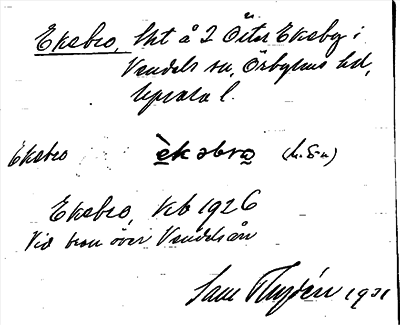 Ekebro, lht å 2 Öster Ekeby i
Vendels sn, Örbyhus hd,
Uppsala l.
Ekebro èkəbro (h. S-n)
Ekebro, kb 1926
Vid bron över Vendelsån
1931